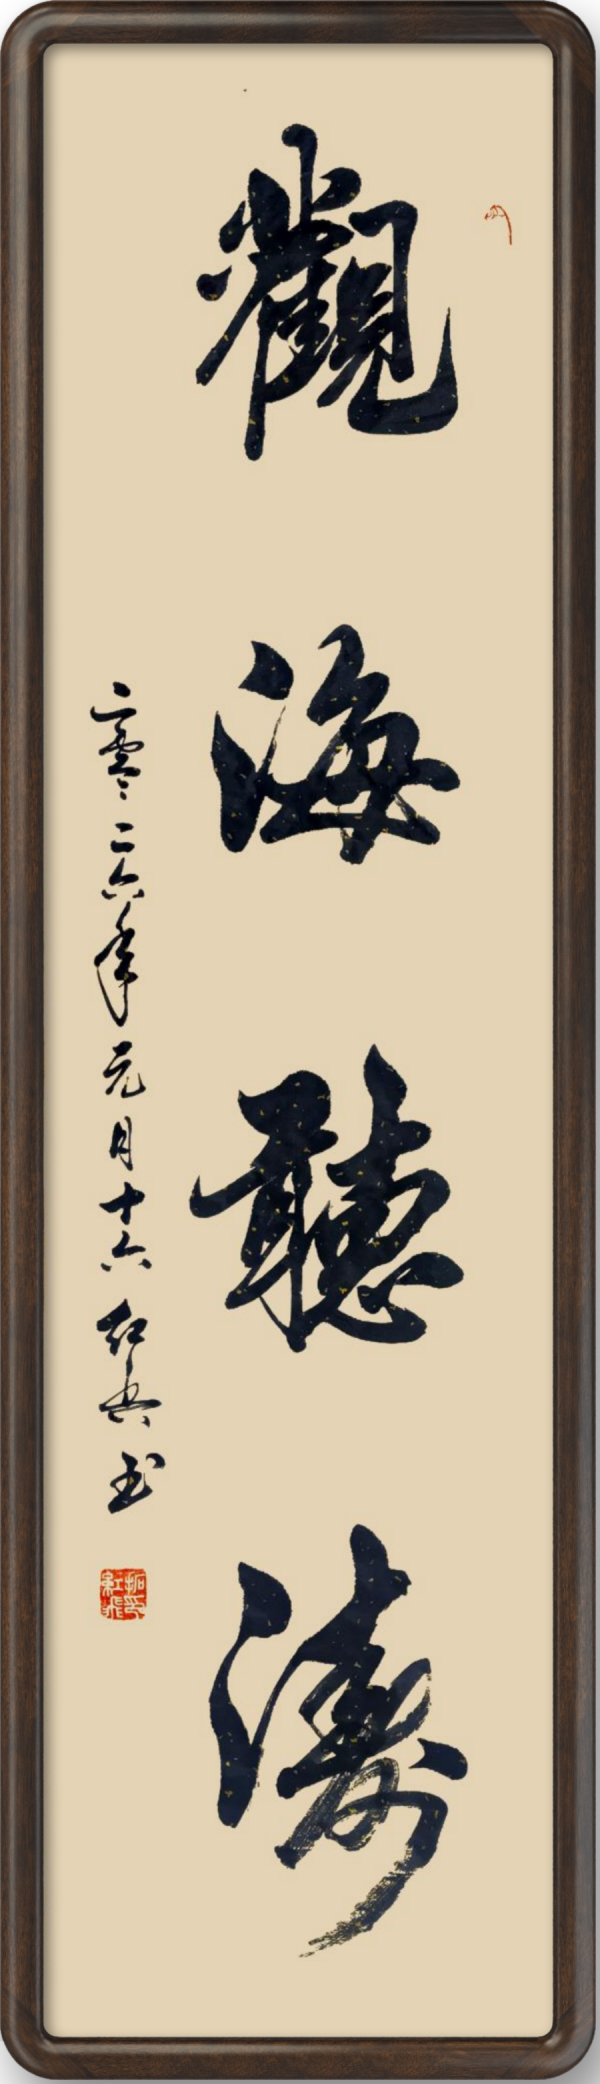 觀海聽濤
二零二六年元月十六 紅兵 书